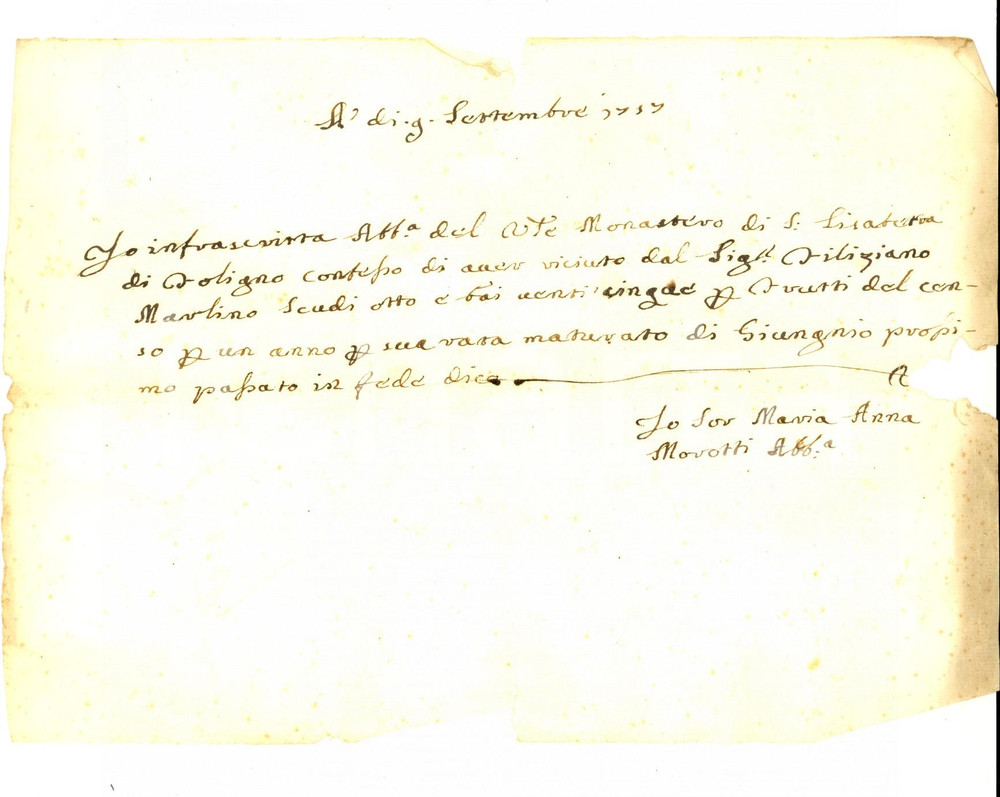 A' di. 9. Settembre 1757
Io infrascritta Abb.a del Vn̄e Monastero di S: Lisabetta
di Foligno confesso di aver riciuto dal Sig.r Filiziano
Marlino Scudi otto e bai venti cinque p Frutti del cen-
so p un anno p sua rata maturato di Giungnio prossi-
mo passato in fede dico
Io Sor Maria Anna
Morotti Abb:a